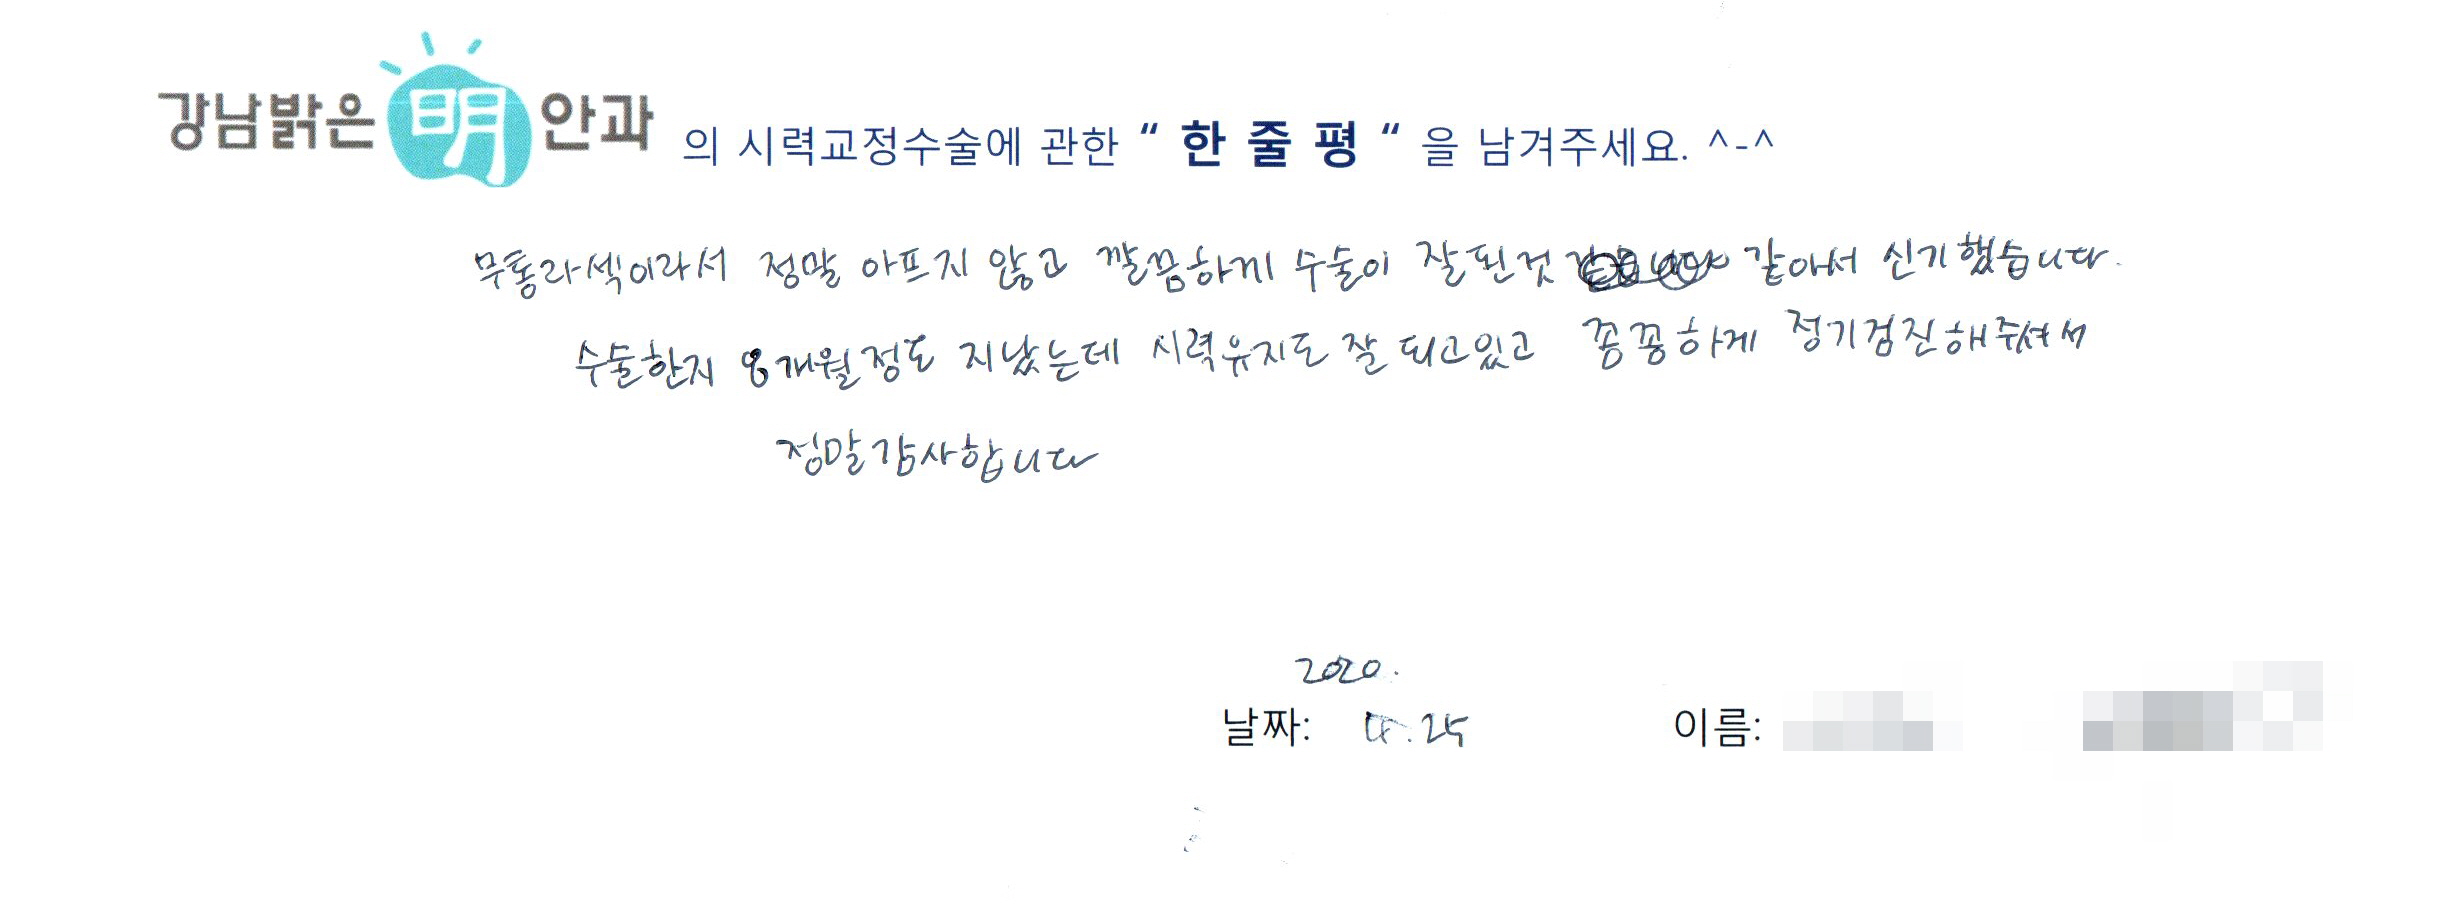 강남밝은明안과 의 시력교정수술에 관한 “ 한 줄 평 “ 을 남겨주세요. ^-^
무통라섹이라서 정말 아프지 않고 깔끔하게 수술이 잘된것 같아서 신기했습니다.
수술한지 8개월정도 지났는데 시력유지도 잘 되고있고 꽁꽁하게 정기검진해주셔서
정말감사합니다
2020.
날짜: 4.25 이름: